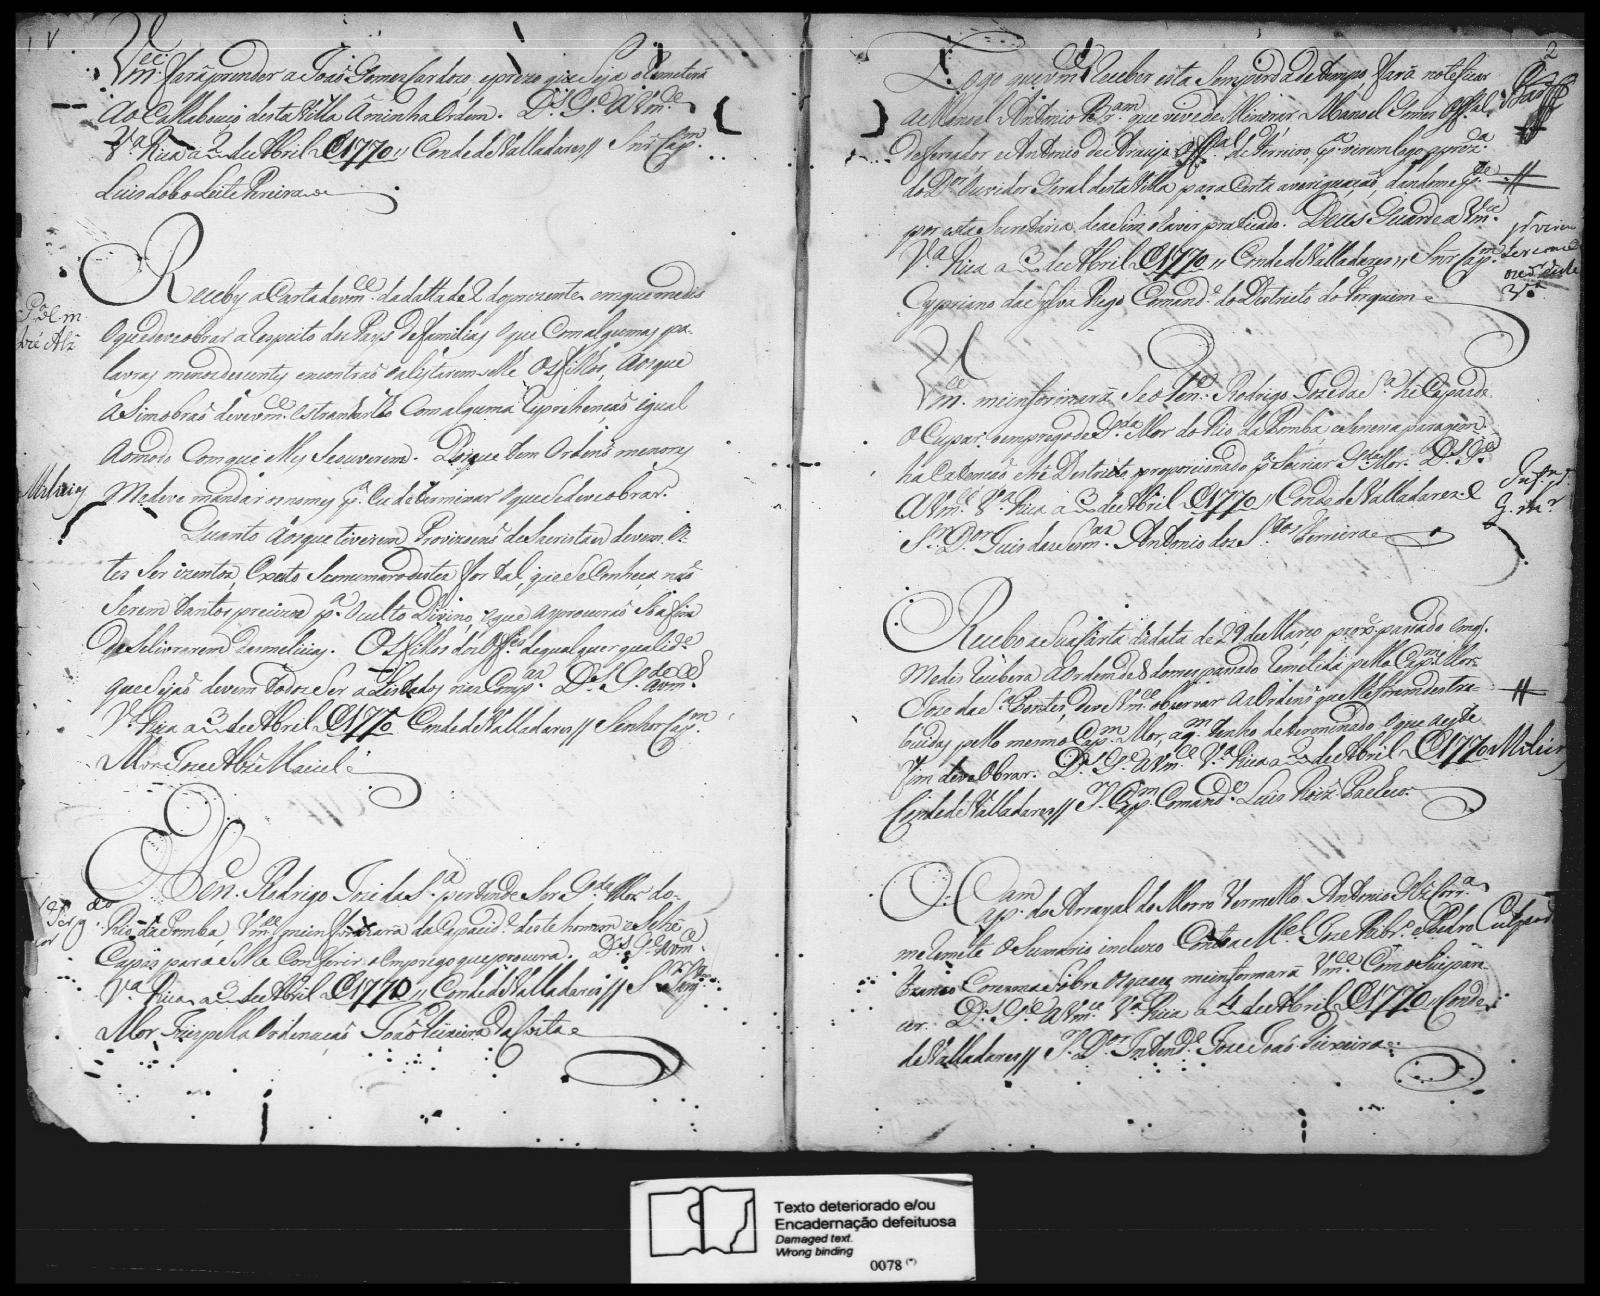 1 V
Vm.ce fará prender a João Gomes Cardozo, eprezo que Seja o Remeterá
Ao Callabouço desta Villa Áminha Ordem. D.s G.e a Vm.ce
V.a Rica a 2 de Abril de 1770,, Conde de Valladares// Snr Cap.m
Luis Lobo Leite Pereira
Receby a Carta de vm.ce da datta de 2 do prezente emque medis
Oque deve obrar a Respeito dos Pays de familias, que Com algumas pa-
lavras menos decentes encontrão o alistaremselhe Os filhos, Aos que
Asim obrão deve vm.ce estranharlho Com alguma Reprehenção igual
Ao modo Com que elles Se ouverem. Dos que tem Ordens menores
Me deve mandar os nomes p.a Eu determinar Oque Se deve obrar.
Milicias
Quanto Aos que tiverem Provizoens de Sacristaens devem Es-
tes Ser izentos, Exceto Se o numaro destes for tal, que Se Conheça não
Serem tantos precizos p.a O culto Divino, e que a procurão So a fim
De Selivrarem das milicias. Os filhos dos Off.es de qual quer qualid.e
que Sejão devem todos Ser alistados nas Comp.as D.s G.de a vm.ce
V.a Rica a 3 de Abril de 1770 Conde de Valladares// Senhor Cap.m
Mor Joze Alz Maciel
O Ten. Rodrigo Joze da S.a pertende Ser G.da Mor do
Rio da Pomba, Vm.ce me informará da Capacid.e deste homem e Se hé
Capas para Selhe Conferir o Emprego que procura. D.s G.e a vm.ce
V.a Rica a 3 de Abril de 1770,, Conde de Valladares// S.r Sarg.to
Mor Juis pella Ordenação João Teixeira da Costa
2
Logo que vm.ce Receber esta Sem perda de tempo fará noteficar
a Manoel Antonio que vive de Minerar Manoel Gomes Off.al
de ferrador e Antonio de Araujo Off.al de Ferreiro p.a virem logo
do D.or Ouvidor Geral desta Villa para Certa averiguação, dandome p.te
por esta Secretaria de aSim o haver praticado. Deos Guarde a Vm.ce
V.a Rica a 3 de Abril de 1770,, Conde de Valladares,, Snr Cap.m
Cypriano da Sylva Rego Comand.e do Districto do Forquim
p.a virem
V.a
Vm.ce me informará Se o Ten.e Rodrigo Joze da S.a hé Capas de
O Cupar o emprego de G.da Mor do Rio da Pomba e Se nesa paragem
ha e hé Districto proporcionado p.a Se criar G.da Mor. D.s G.e
A Vm.ce V.a Rica a 3 de Abril de 1770,, Conde de Valladares
S.r D.or Juis das Sesm.as Antonio dos S.tos Ferreira
G. m.r
Recebo a Sua Carta da data de 29 de Março prox.o pasado em q.
Me dis Recebera a Ordem de 8 do mes pasado Remetida pello Cap.m Mor
Joze da S.a Pontes, deve Vm.ce observar as Ordens que lhe forem destre-
buidas pello mesmo Cap.m Mor, a q.m tenho determinado Oque a este
fim deve Obrar. D.s G.e a Vm.ce V.a Rica a 3 de Abril de 1770
Milicias
Conde de Valladares// S.r Cap.m Comand.e Luis Roiz Pacheco
O Cap.am do Arrayal do Morro Vermelho Antonio Glz Torr.as
me Remete O Sumario incluzo Contra M.el Joze Rib.ro e Pedro
Culpados
Branco Correa Sobre Os quaes me informará Vm.ce Com o Seu pare-
cer. D.s G.e a Vm.ce V.a Rica a 4 de Abril de 1770,, Conde
de Valladares// S.r D.or Intend.e Joze João Teixeira
Texto deteriorado e/ou
Encadernação defeituosa
Damaged text.
Wrong binding
0078 (*)